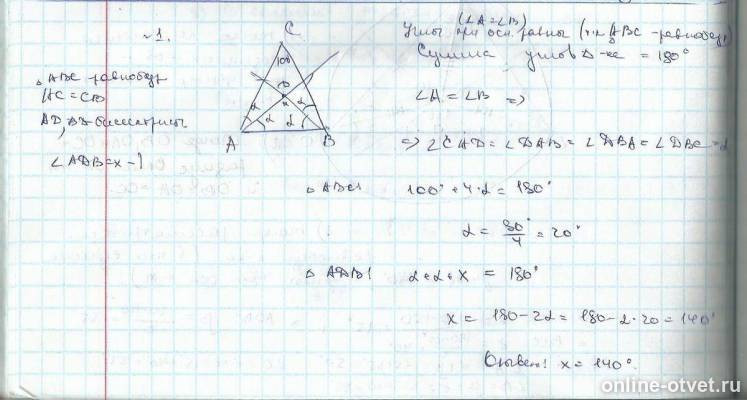 N1.
△ABC - равнобедр
AC = CB
AD, BD - биссектрисы
∠ADB = x - ?
C
100
D
x
α
α
α
α
A
B
(∠A = ∠B)
Углы при осн. равны (т.к △ABC - равнобедр)
Сумма углов △-ка = 180°
∠A = ∠B =>
=> ∠CAD = ∠DAB = ∠DBA = ∠DBC = α
△ABC: 100° + 4·α = 180°
α = 80°/4 = 20°
△ADB: α + α + x = 180°
x = 180 - 2α = 180 - 2·20 = 140°
Ответ: x = 140°.
online-otvet.ru